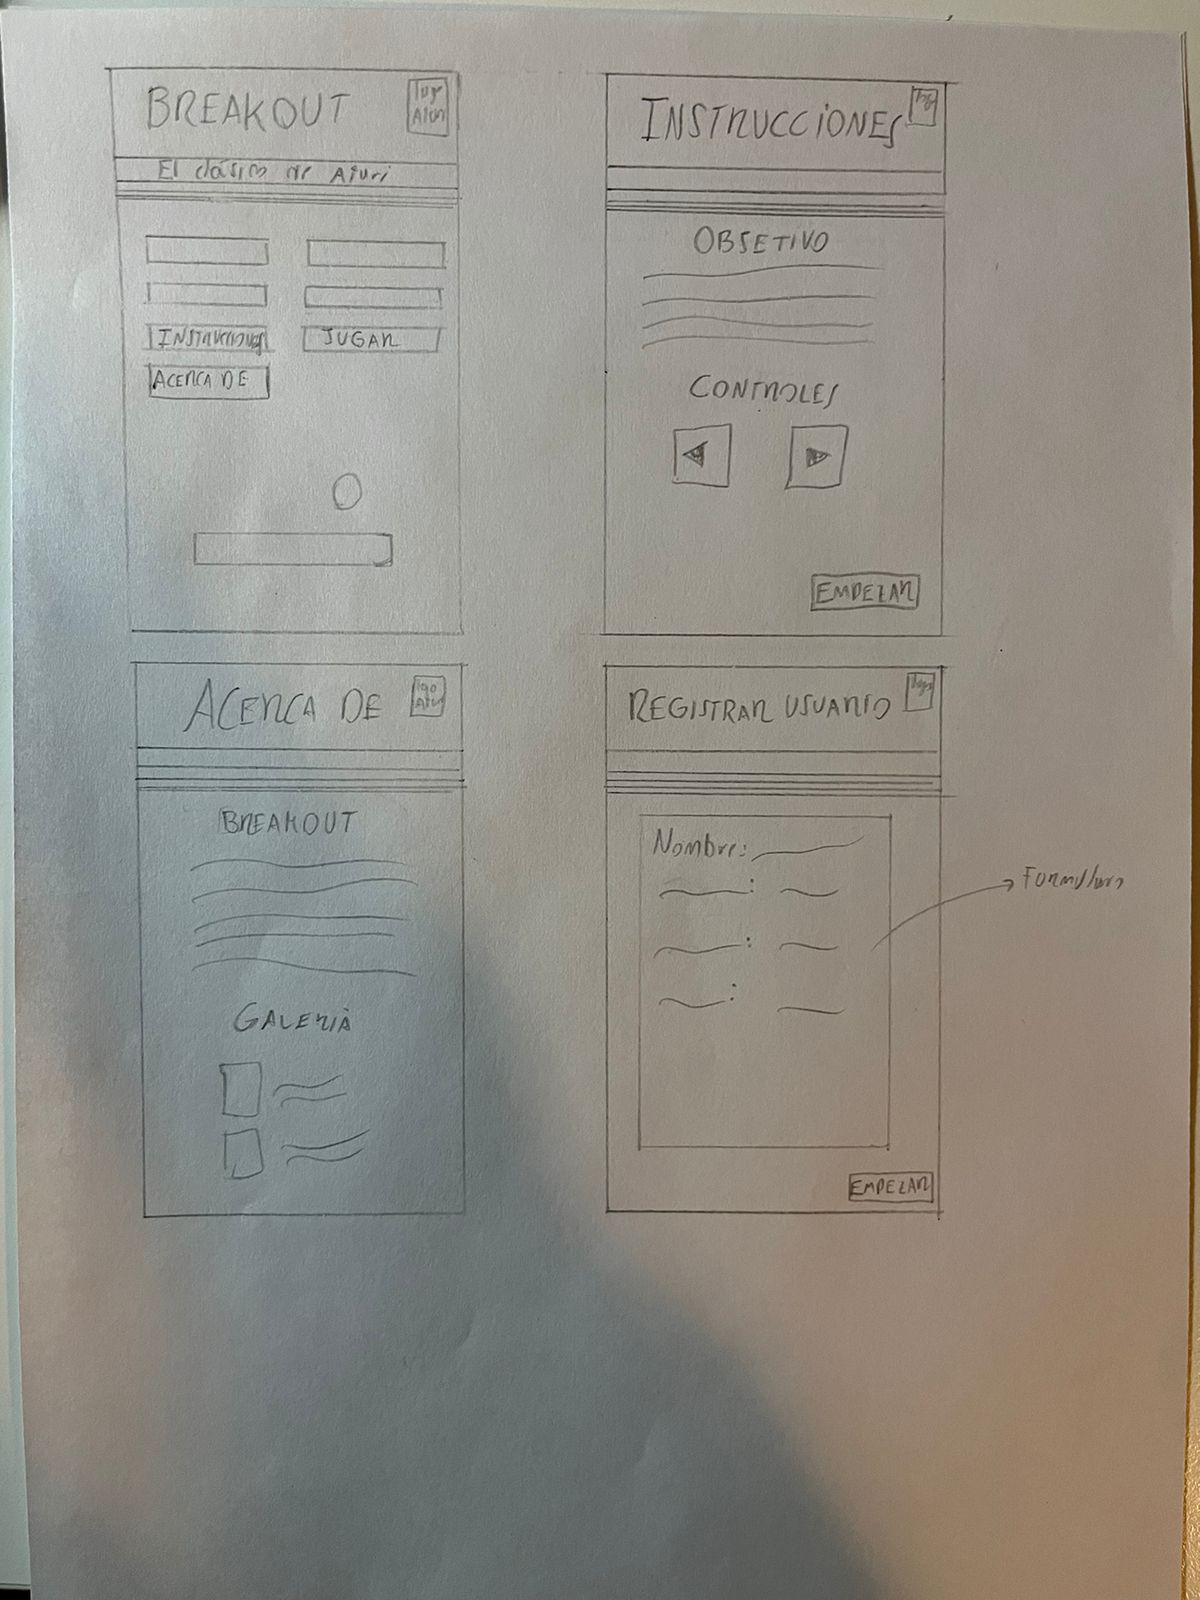 BREAKOUT
logo
Atari
El clásico de Atari
INSTRUCCIONES
JUGAR
ACERCA DE
INSTRUCCIONES
logo
OBJETIVO
CONTROLES
EMPEZAR
ACERCA DE
logo
Atari
BREAKOUT
GALERIA
REGISTRAR USUARIO
logo
Nombre:
Formulario
EMPEZAR